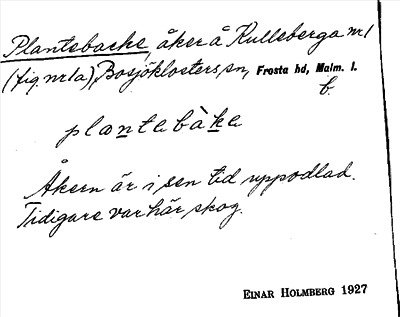 Plantebacke, åker å Kulleberga nr 1
(fig. nr 1a), Bosjöklosters sn, Frosta hd, Malm. l.
b.
plantebàka
Åkern är i sen tid uppodlad.
Tidigare var här skog.
EINAR HOLMBERG 1927